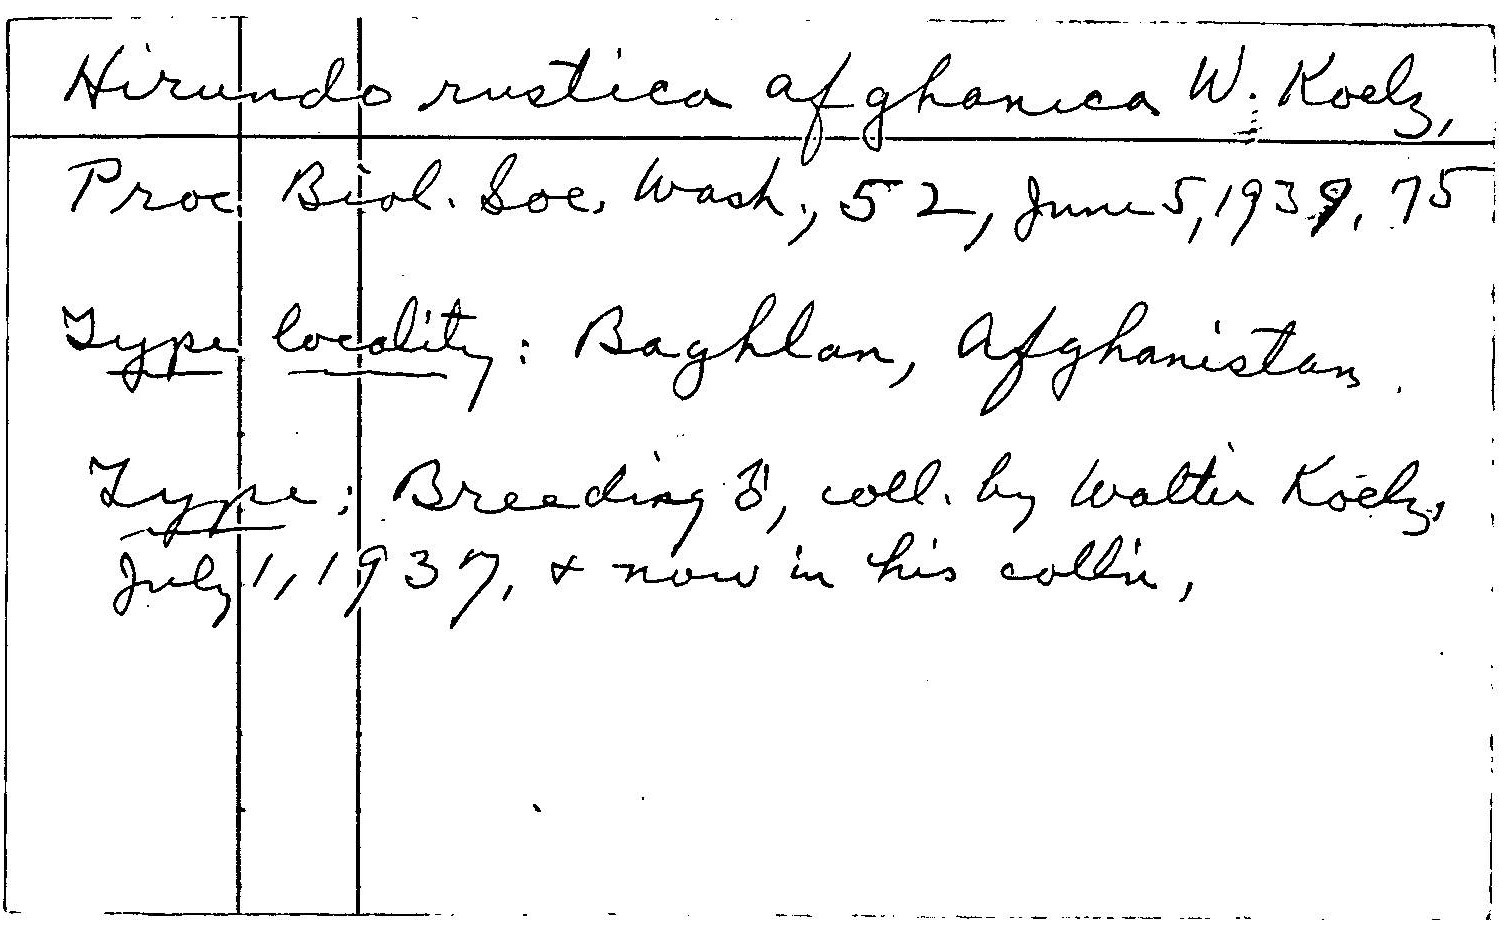 Hirundo rustica afghanica W. Koelz,
Proc. Biol. Soc. Wash., 52, June 5, 1939, 75
Type locality: Baghlan, Afghanistan.
Type: Breeding ♂, coll. by Walter Koelz,
July 1, 1937, & now in his coll'n,